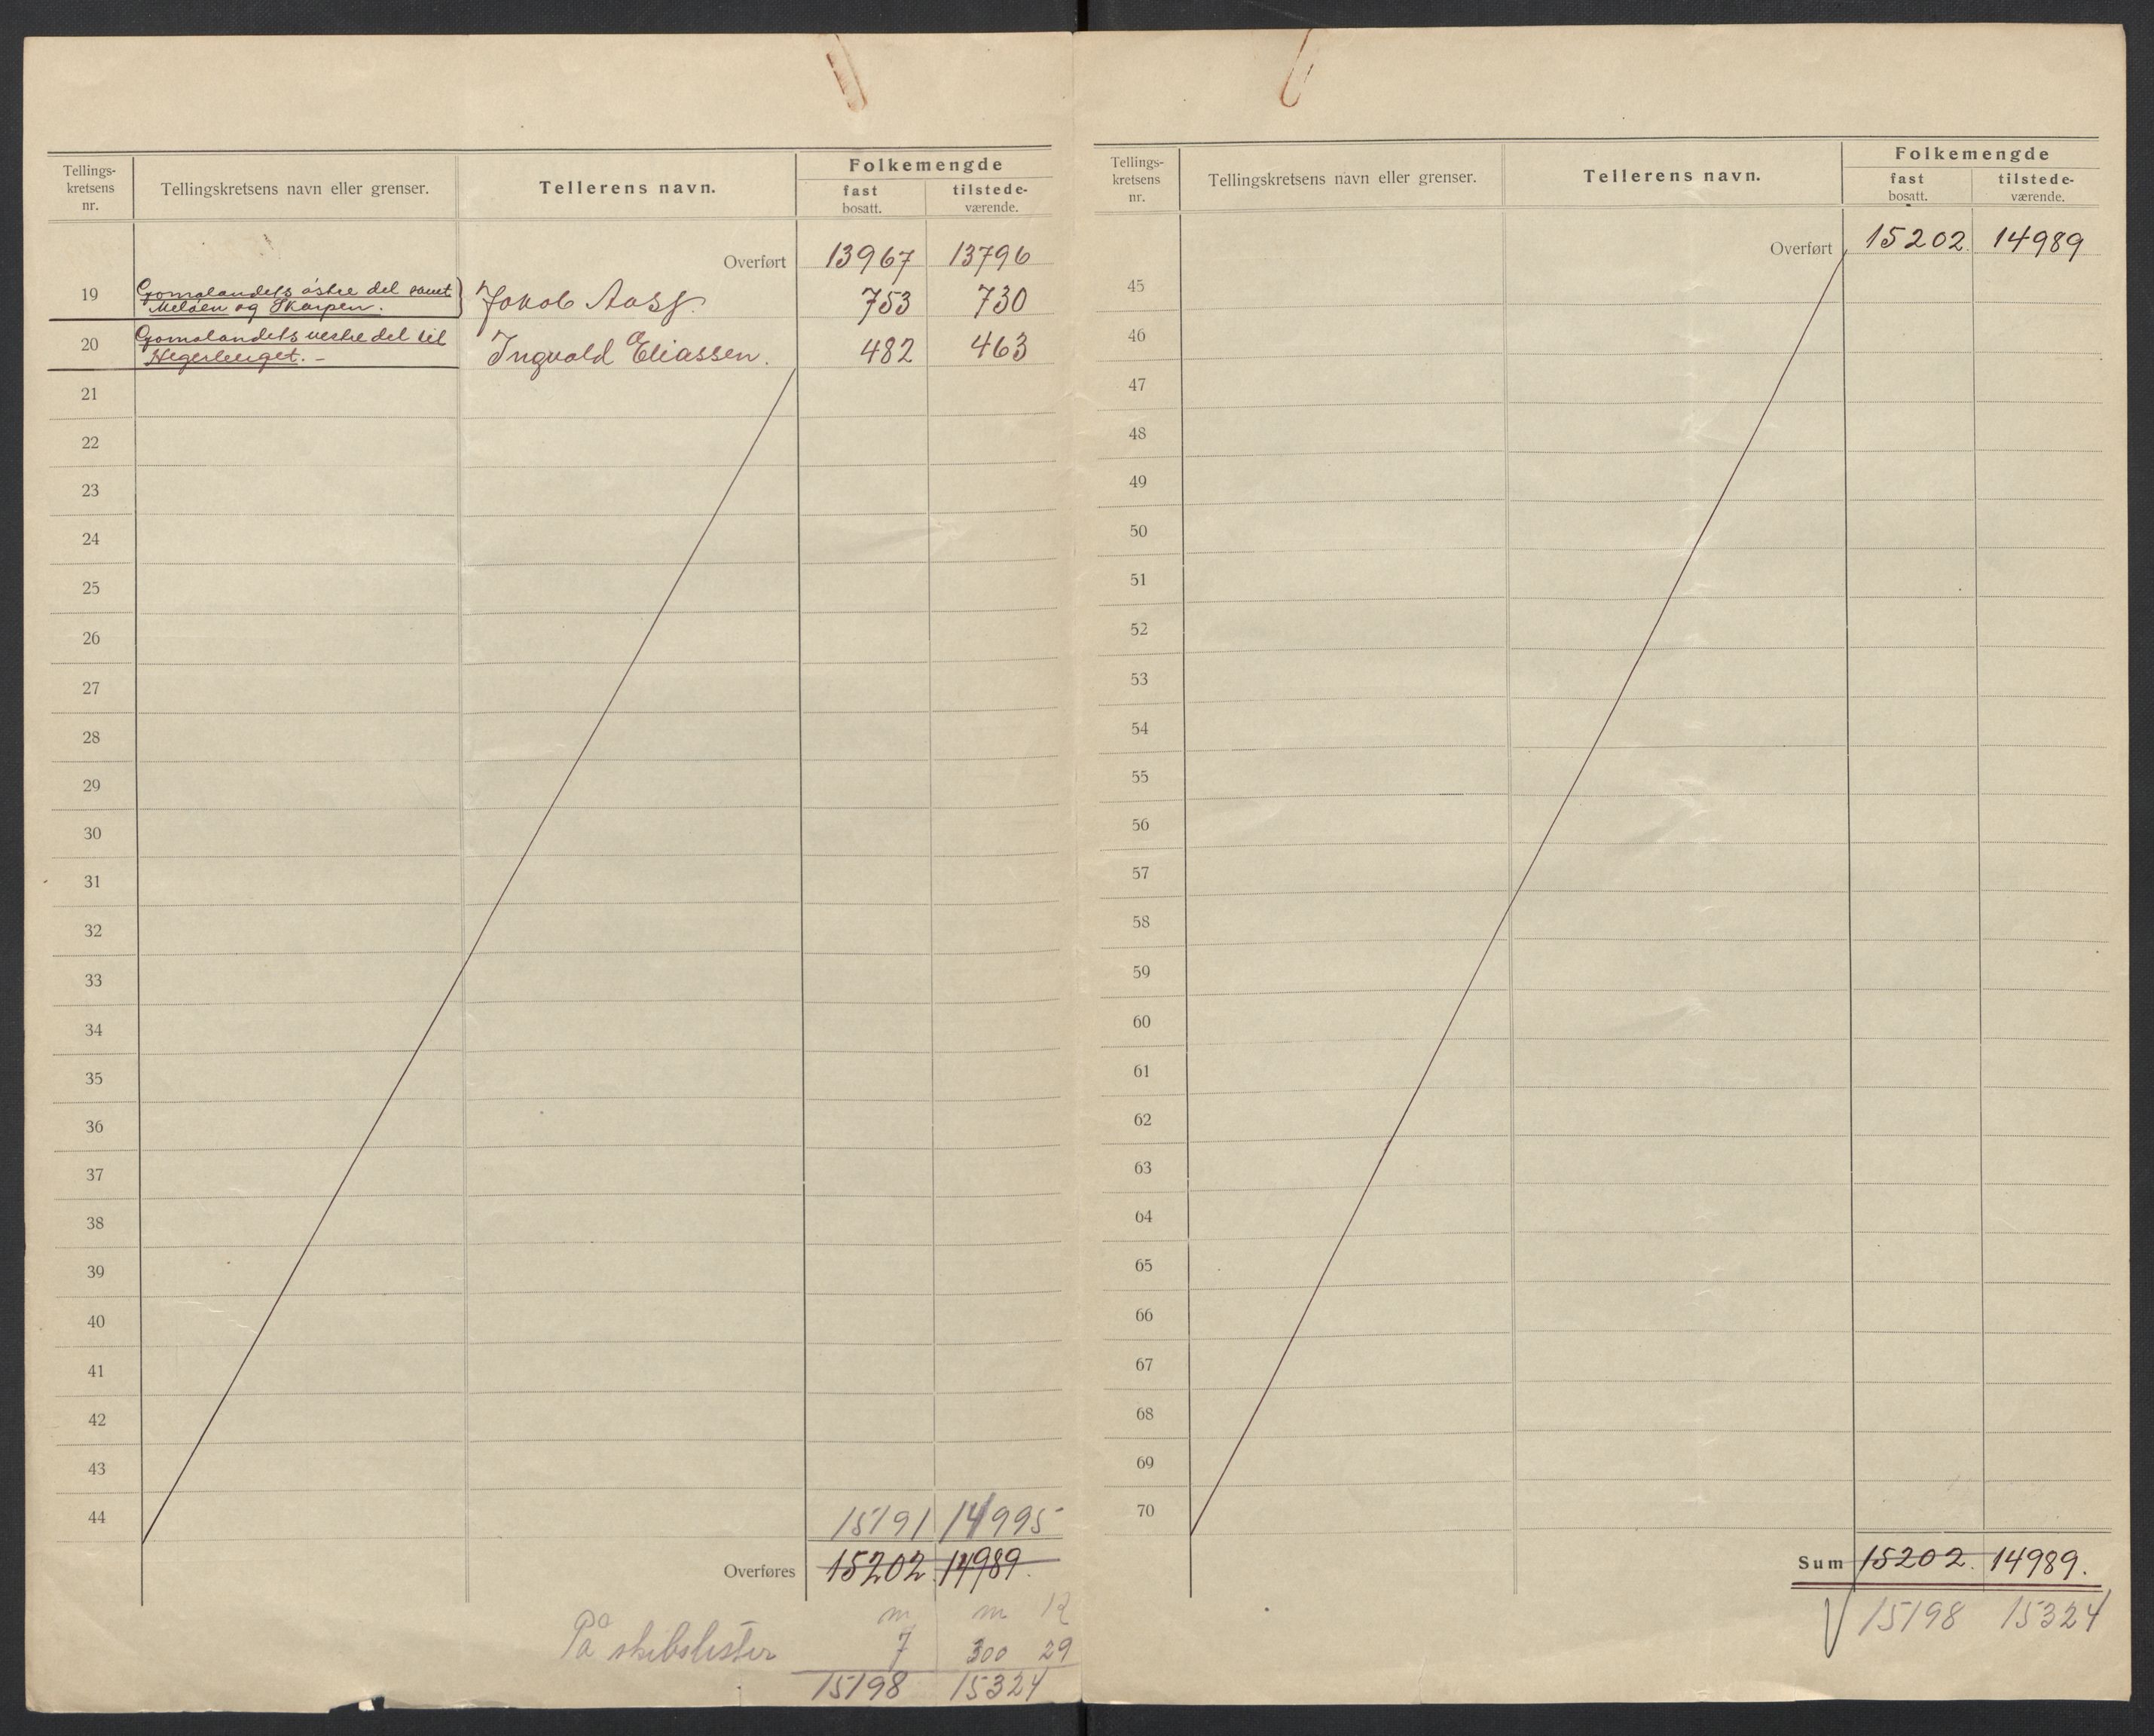 Tellings-
kretsens
nr.
Tellingskretsens navn eller grenser.
Tellerens navn.
Folkemengde
fast
bosatt.
tilstede-
værende.
Overført 13967 13796
19 Gomalandets østre del samt
Meløen og Skarpen. Jakob Aass. 753 730
20 Gomalandets vestre del til
Hegerberget. – Ingvald Eliassen. 482 463
21
22
23
24
25
26
27
28
29
30
31
32
33
34
35
36
37
38
39
40
41
42
43
44 15191 14995
Overføres 15202. 14989.
m m K
På skibslister 7 300 29
15198 15324
Tellings-
kretsens
nr.
Tellingskretsens navn eller grenser.
Tellerens navn.
Folkemengde
fast
bosatt.
tilstede-
værende.
Overført 15202. 14989
45
46
47
48
49
50
51
52
53
54
55
56
57
58
59
60
61
62
63
64
65
66
67
68
69
70
Sum 15202. 14989.
15198 15324